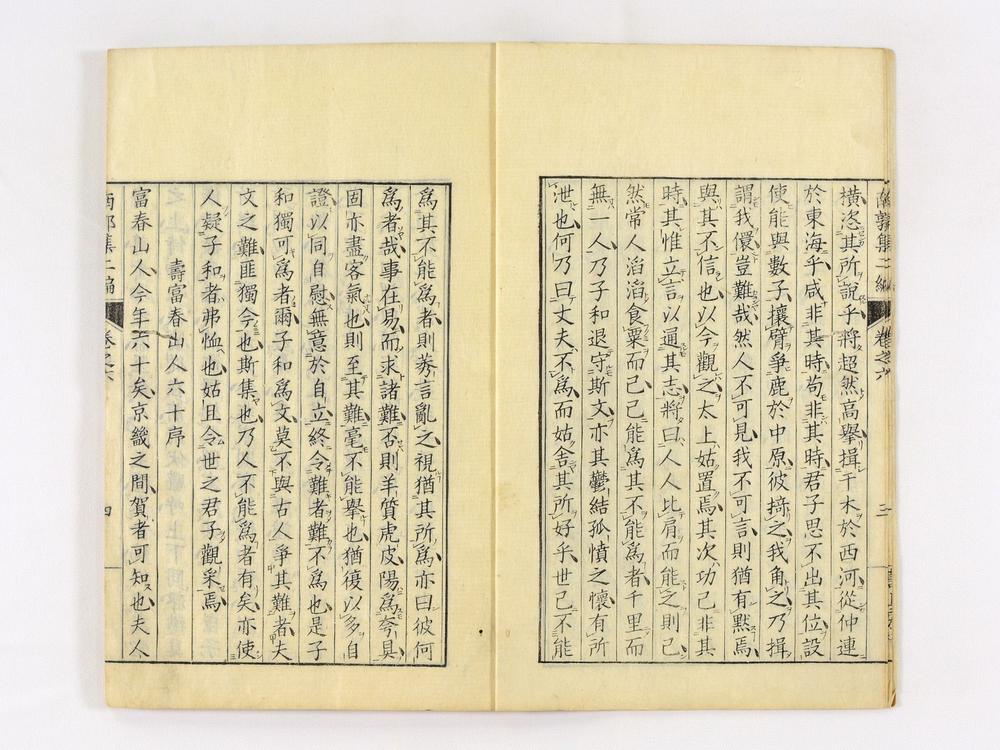 南郭集二編 卷之六 三
橫恣其所說乎將超然高擧揖干木於西河從仲連
於東海乎咸非其時苟非其時君子思不出其位設
使能與數子攘臂爭鹿於中原彼掎之我角之乃揖
謂我儇豈難哉然人不可見我不可言則猶有默焉
與其不信也以今觀之太上姑置焉其次功已非其
時其惟立言以通其志將曰人人比肩而能之則已
然常人滔滔食粟而已已能爲其不能爲者千里而
無一人乃子和退守斯文亦其鬱結孤憤之懷有所
泄也何乃曰丈夫不爲而姑舍其所好乎世已不能
爲其不能爲者則莠言亂之視猶其所爲亦曰彼何
爲者哉事在易而求諸難否則羊質虎皮陽爲夸具
固亦盡客氣也則至其難毫不能擧也猶復以多自
證以同自慰無意於自立終令難者難不爲也是子
和獨可爲者爾子和爲文莫不與古人爭其難者夫
文之難匪獨今也斯集也乃人不能爲者有矣亦使
人疑子和者弗恤也姑且令世之君子觀采焉
壽富春山人六十序
富春山人今年六十矣京畿之間賀者可知也夫人
南郭集二編 卷之六 四